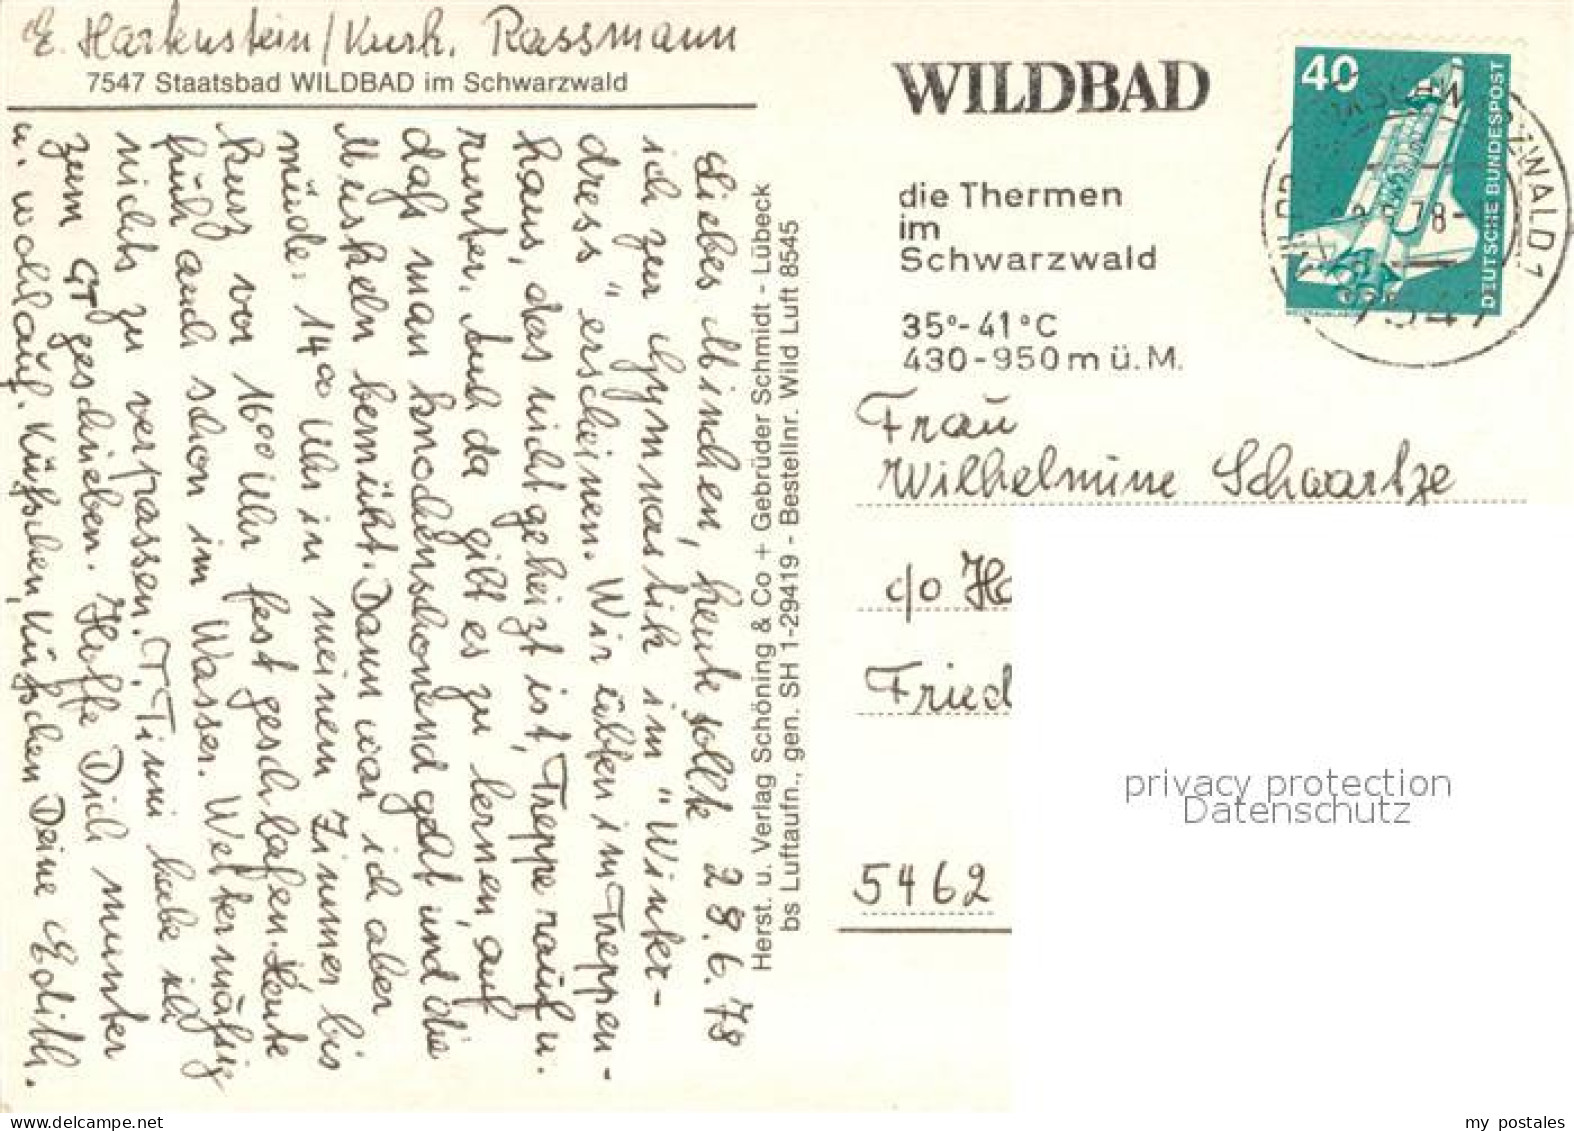 E. Hartenstein / Kurh. Rassmann
7547 Staatsbad WILDBAD im Schwarzwald
28.6.78
Liebes Minchen, heute sollte
ich zur Gymnastik im "Winter-
dress" erscheinen. Wir übten im Treppen-
haus, das nicht geheizt ist, Treppe rauf u.
runter. Auch da gibt es zu lernen, auf
daß man knochenschonend geht und die
Muskeln bemüht. Dann war ich aber
müde: 14°° Uhr in meinem Zimmer bis
kurz vor 16°° Uhr fest geschlafen. Heute
früh auch schon im Wasser. Wettermäßig
nichts zu verpassen. T. Timi habe ich
zum GT geschrieben. Hoffe Dich munter
u. wohlauf. Küßchen, Küßchen Deine Edith.
Herst. u. Verlag Schöning & Co + Gebrüder Schmidt - Lübeck
bs Luftaufn., gen. SH 1-29419 - Bestellnr. Wild Luft 8545
WILDBAD
die Thermen
im
Schwarzwald
35°-41°C
430-950 m ü. M.
40
DEUTSCHE BUNDESPOST
ZWALD 1
78
7547
Frau
Wilhelmine Schwartze
c/o Ho
Fried
5462
privacy protection
Datenschutz
my postales